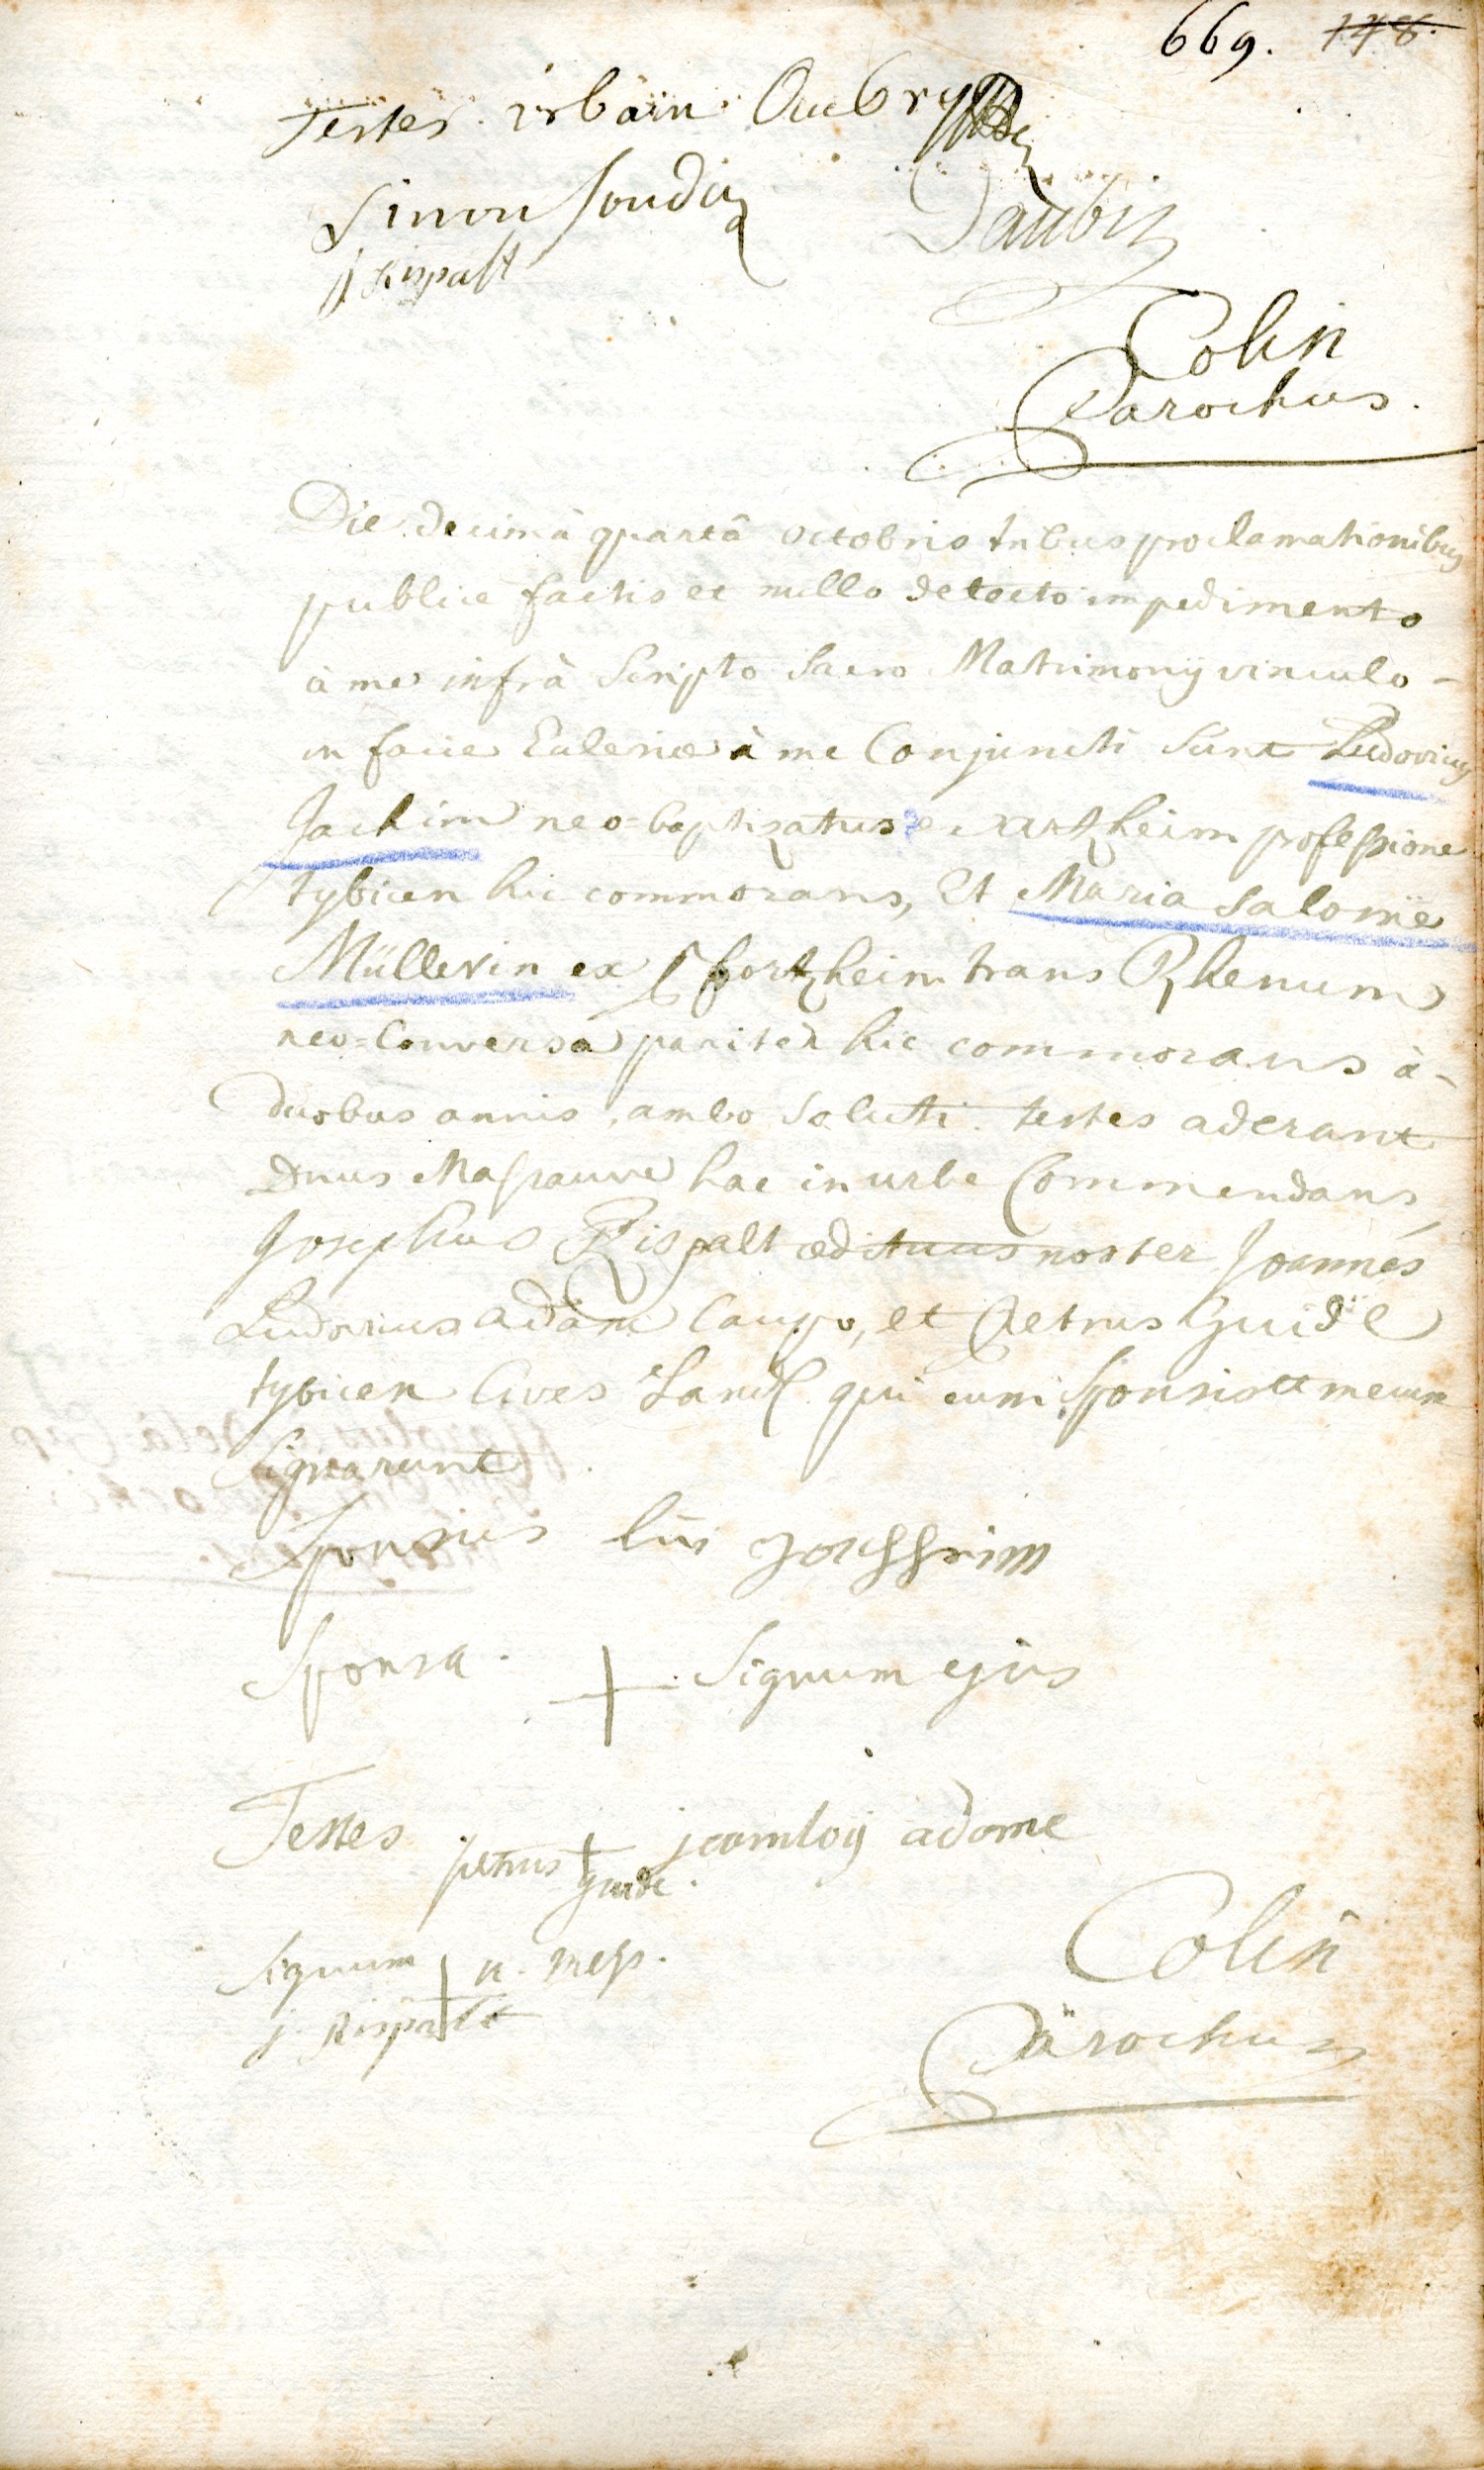 669. 748.
Testes. irbain Oucbry
Simon Soudin Daubin
J Rispalt
Colin
Parochus.
Die decimâ quartâ octobris tribus proclamationibus
publice factis et nullo detecto impedimento
à me infrà Scripto Sacro Matrimonij vinculo -
in facie Eclesiæ à me Conjuncti Sunt Ludovicus
Jachim neo=baptizatus e professione
tybicen hic commorans, Et Maria Salomë
Müllerin ex Pfortzheim trans Rhenum
neo=Conversa pariter hic commorans à -
duobus annis, ambo Soluti. testes aderant
Dnus hac in urbe Commendans,
Josephus Rispalt ædituus noster, Joannes
Ludovicus adam Caupo, et Petrus Guidë
tybicen Cives Land. qui cum Sponsis et mecum
Signarunt.
Sponsus
Sponsa. + Signum ejus
Testes petrus + guide. jeamloÿ adome
Signum + n. Mess.
j. Rispalt
Colin
Parochus